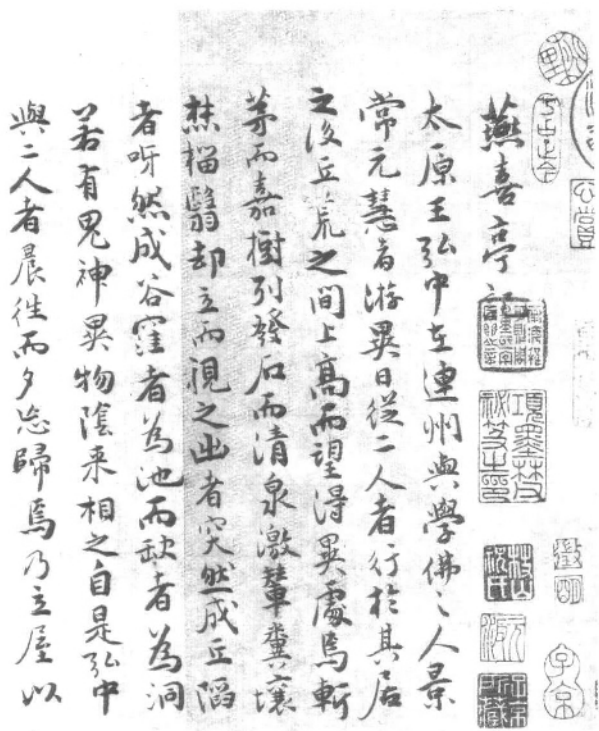 子京
項墨林父祕笈之印
燕喜亭記
太原王弘中在連州與學佛〻人景
常元慧者游異日從二人者行於其居
之後丘荒之間上高而望得異處焉斬
茅而嘉樹列發石而清泉激輦糞壤
椔翳却立而視之出者突然成丘陷
者呀然成谷窪者為池而缺者為洞
若有鬼神異物陰来相之自是弘中
與二人者晨往而夕忘歸焉乃立屋以